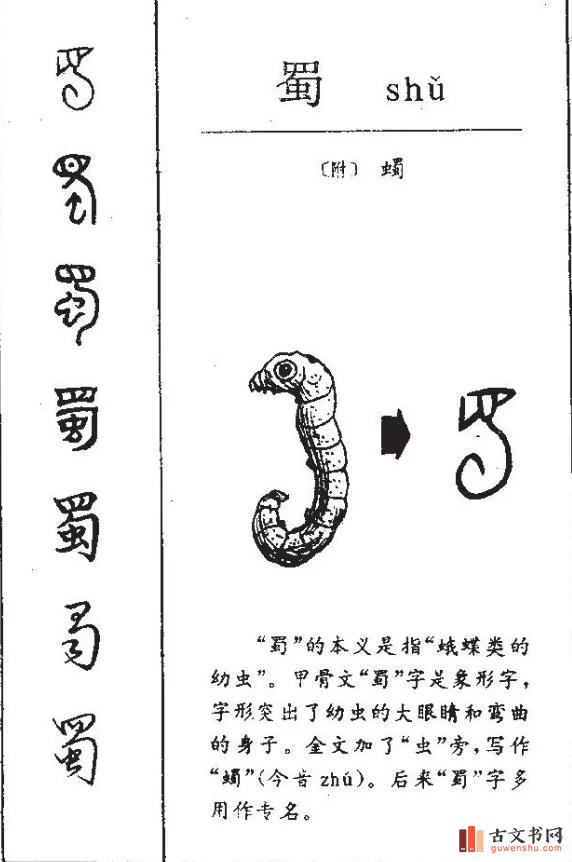 蜀 shǔ
〔附〕 蠋
“蜀”的本义是指“蛾蝶类的
幼虫”。甲骨文“蜀”字是象形字，
字形突出了幼虫的大眼睛和弯曲
的身子。金文加了“虫”旁，写作
“蠋”(今音zhú)。后来“蜀”字多
用作专名。
蜀
蜀
古文书网
guwenshu.com